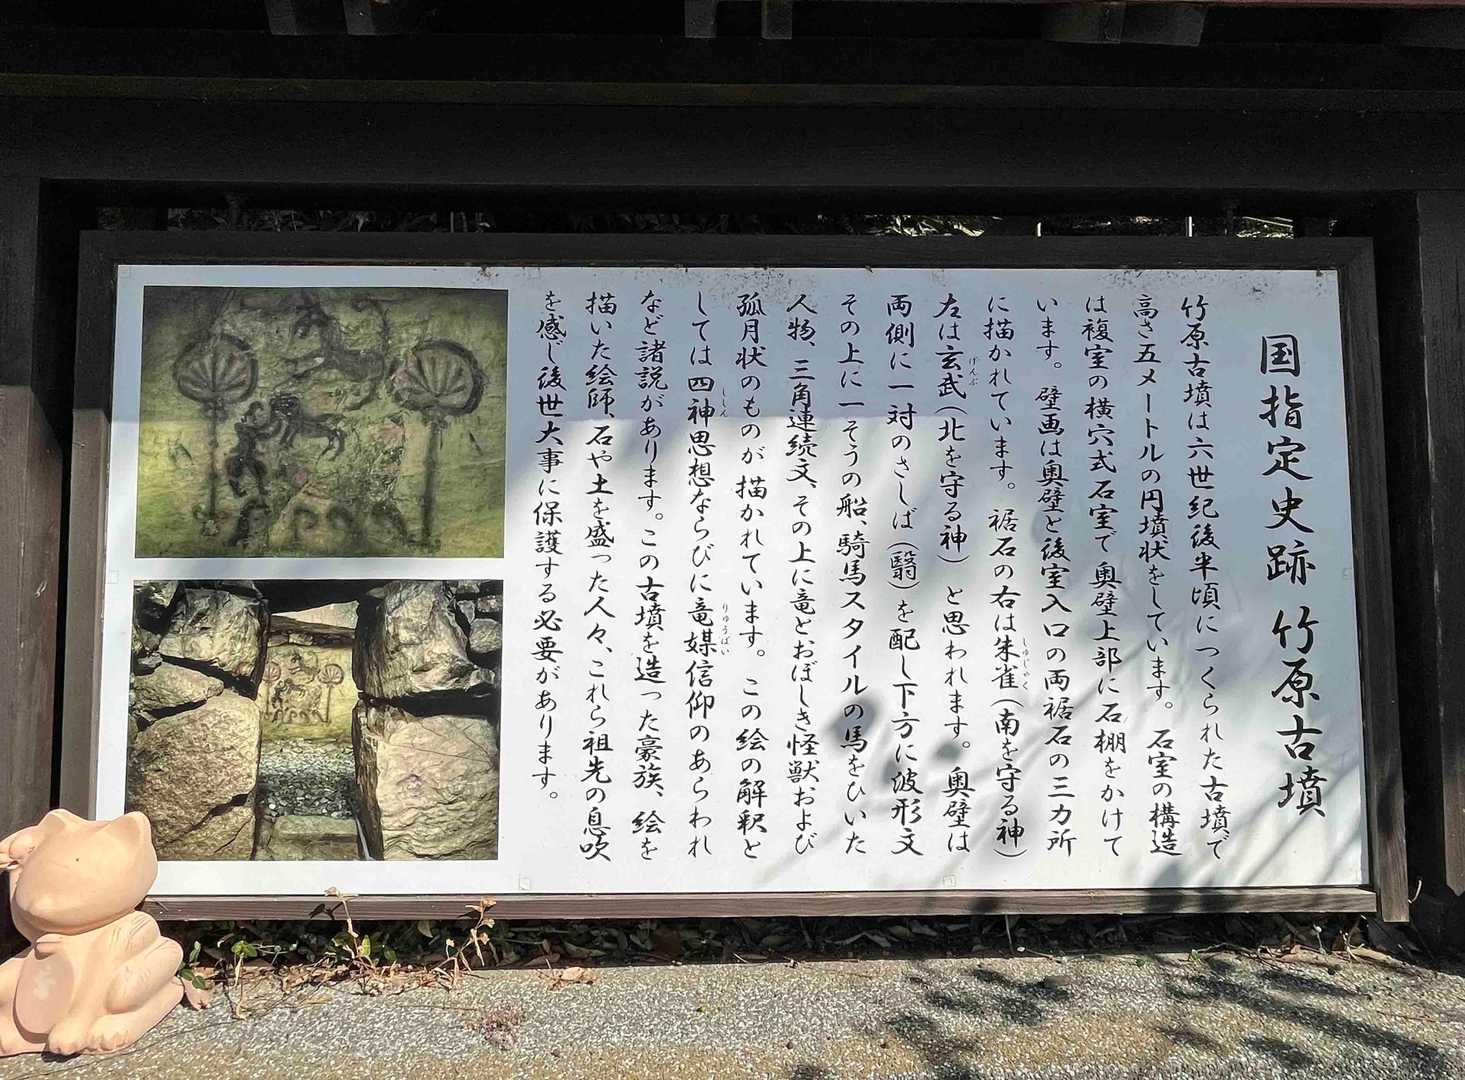 国指定史跡 竹原古墳
竹原古墳は六世紀後半頃につくられた古墳で
高さ五メートルの円墳状をしています。石室の構造
は複室の横穴式石室で奥壁上部に石棚をかけて
います。壁画は奥壁と後室入口の両裾石の三カ所
に描かれています。裾石の右は朱雀(南を守る神)
しゅじゃく
左は玄武(北を守る神)と思われます。奥壁は
げんぶ
両側に一対のさしば(翳)を配し下方に波形文
その上に一そうの船、騎馬スタイルの馬をひいた
人物、三角連続文、その上に竜とおぼしき怪獣および
弧月状のものが描かれています。この絵の解釈と
しては四神思想ならびに竜媒信仰のあらわれ
ししん
りゅうばい
など諸説があります。この古墳を造った豪族、絵を
描いた絵師、石や土を盛った人々、これら祖先の息吹
を感じ後世大事に保護する必要があります。